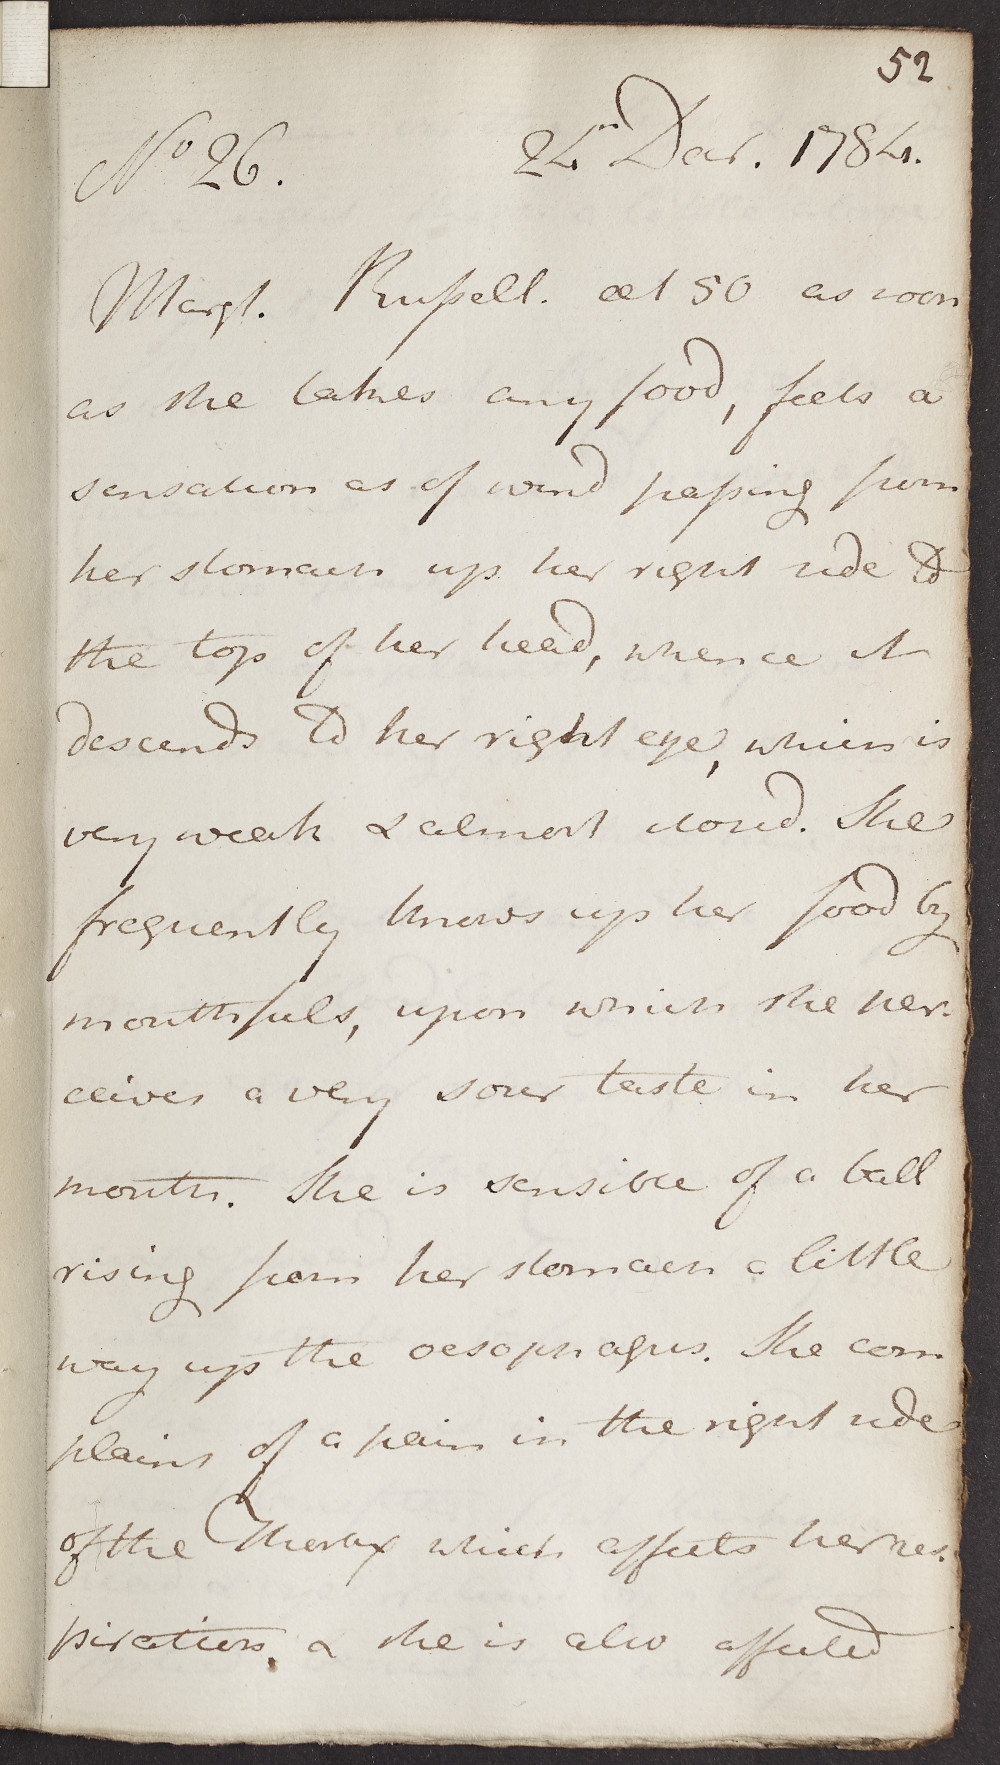 52
No 26. 24th Decr. 1784.
Margt. Russell. æt 50 as soon
as she takes any food, feels a
sensation as of wind passing from
her stomach up her right side to
the top of her head, whence it
descends to her right eye, which is
very weak & almost closed. She
frequently throws up her food by
mouthfuls, upon which she per-
ceives a very sour taste in her
mouth. She is sensible of a ball
rising from her stomach a little
way up the oesophagus. She com
plains of a pain in the right side
of the Thorax which affects her res-
piration, & she is also affected